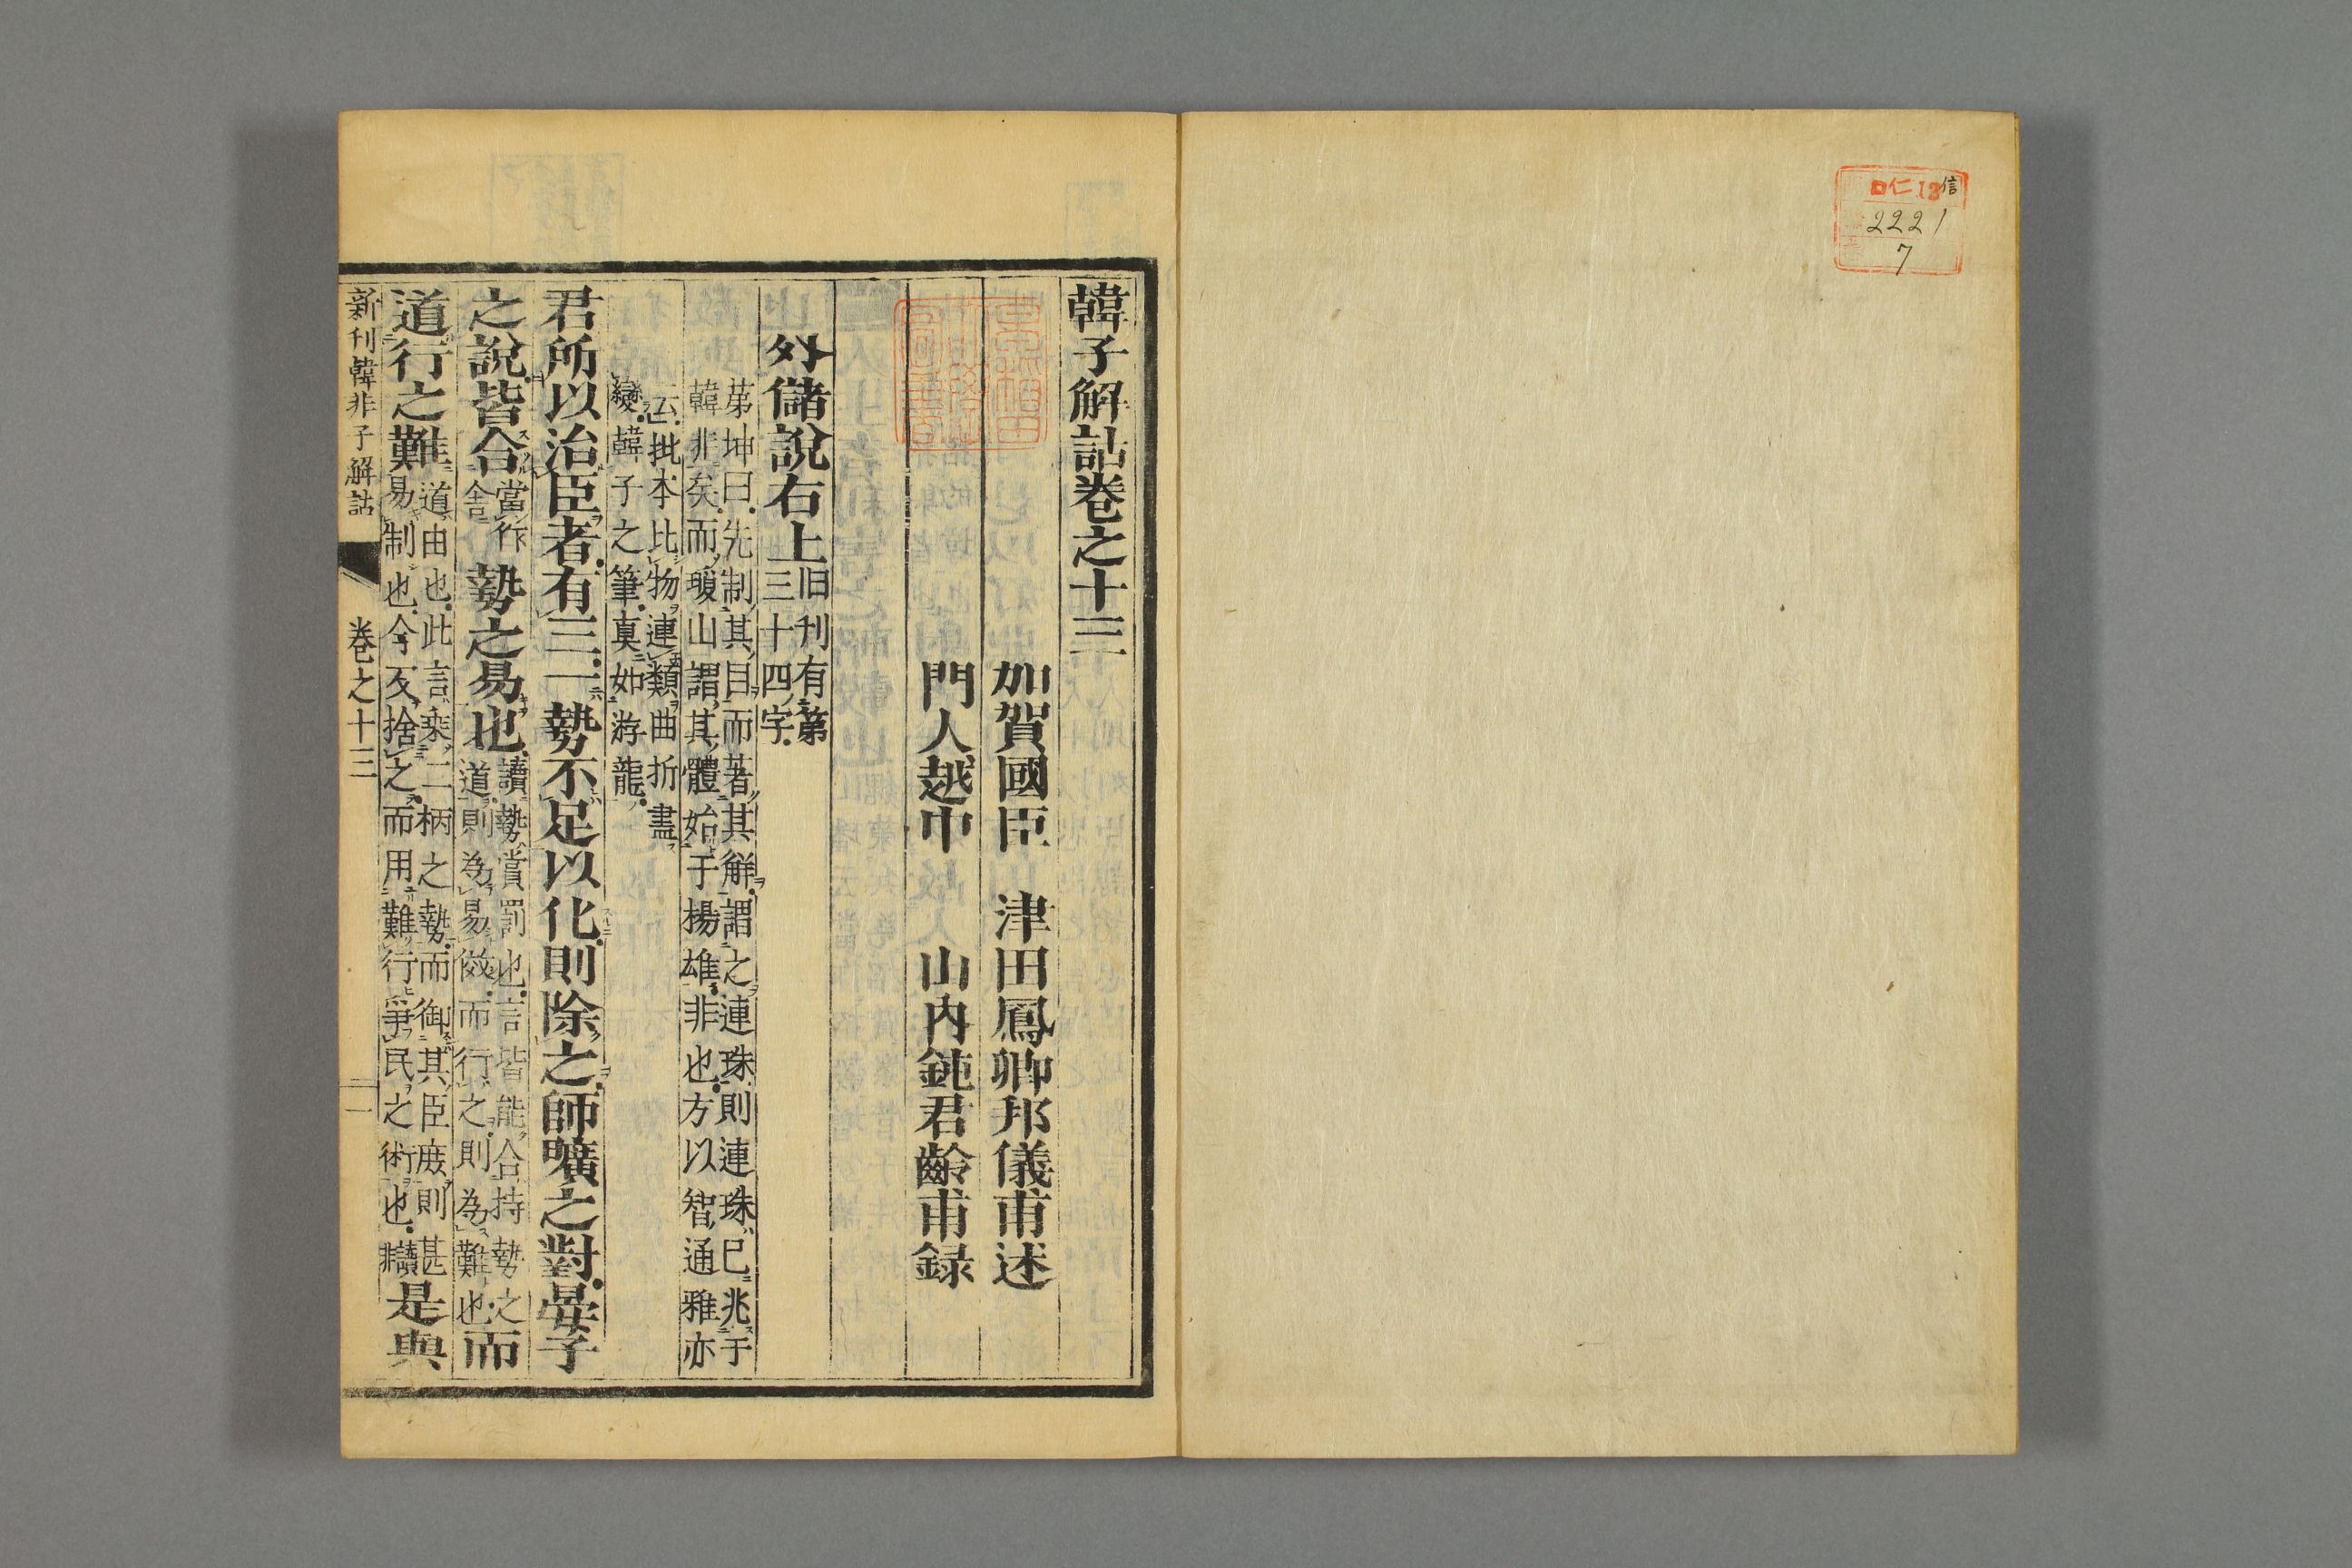 ロ仁13
信
2221
7
韓子解詁卷之十三
加賀國臣 津田鳳卿邦儀甫述
門人越中 山內鈍君齡甫録
外儲說右上
旧刊有第
三十四字
茅坤曰先制其目而著其解謂之連珠則連珠已兆于
韓非矣而瓊山謂其體始于楊雄非也方以智通雅亦
云批本比物連類曲折盡
變韓子之筆真如游龍
君所以治臣者有三一勢不足以化則除之師曠之對晏子
之說皆合
當作
舍
勢之易也
讀勢賞罰也言皆能合持勢之
道則為易倣而行之則為難也
而
道行之難
道由也此言乘二柄之勢而御其臣庶則甚
易制也今反捨之而用難行爭民之術也
讀
非
是與
新刊韓非子解詁 卷之十三 一